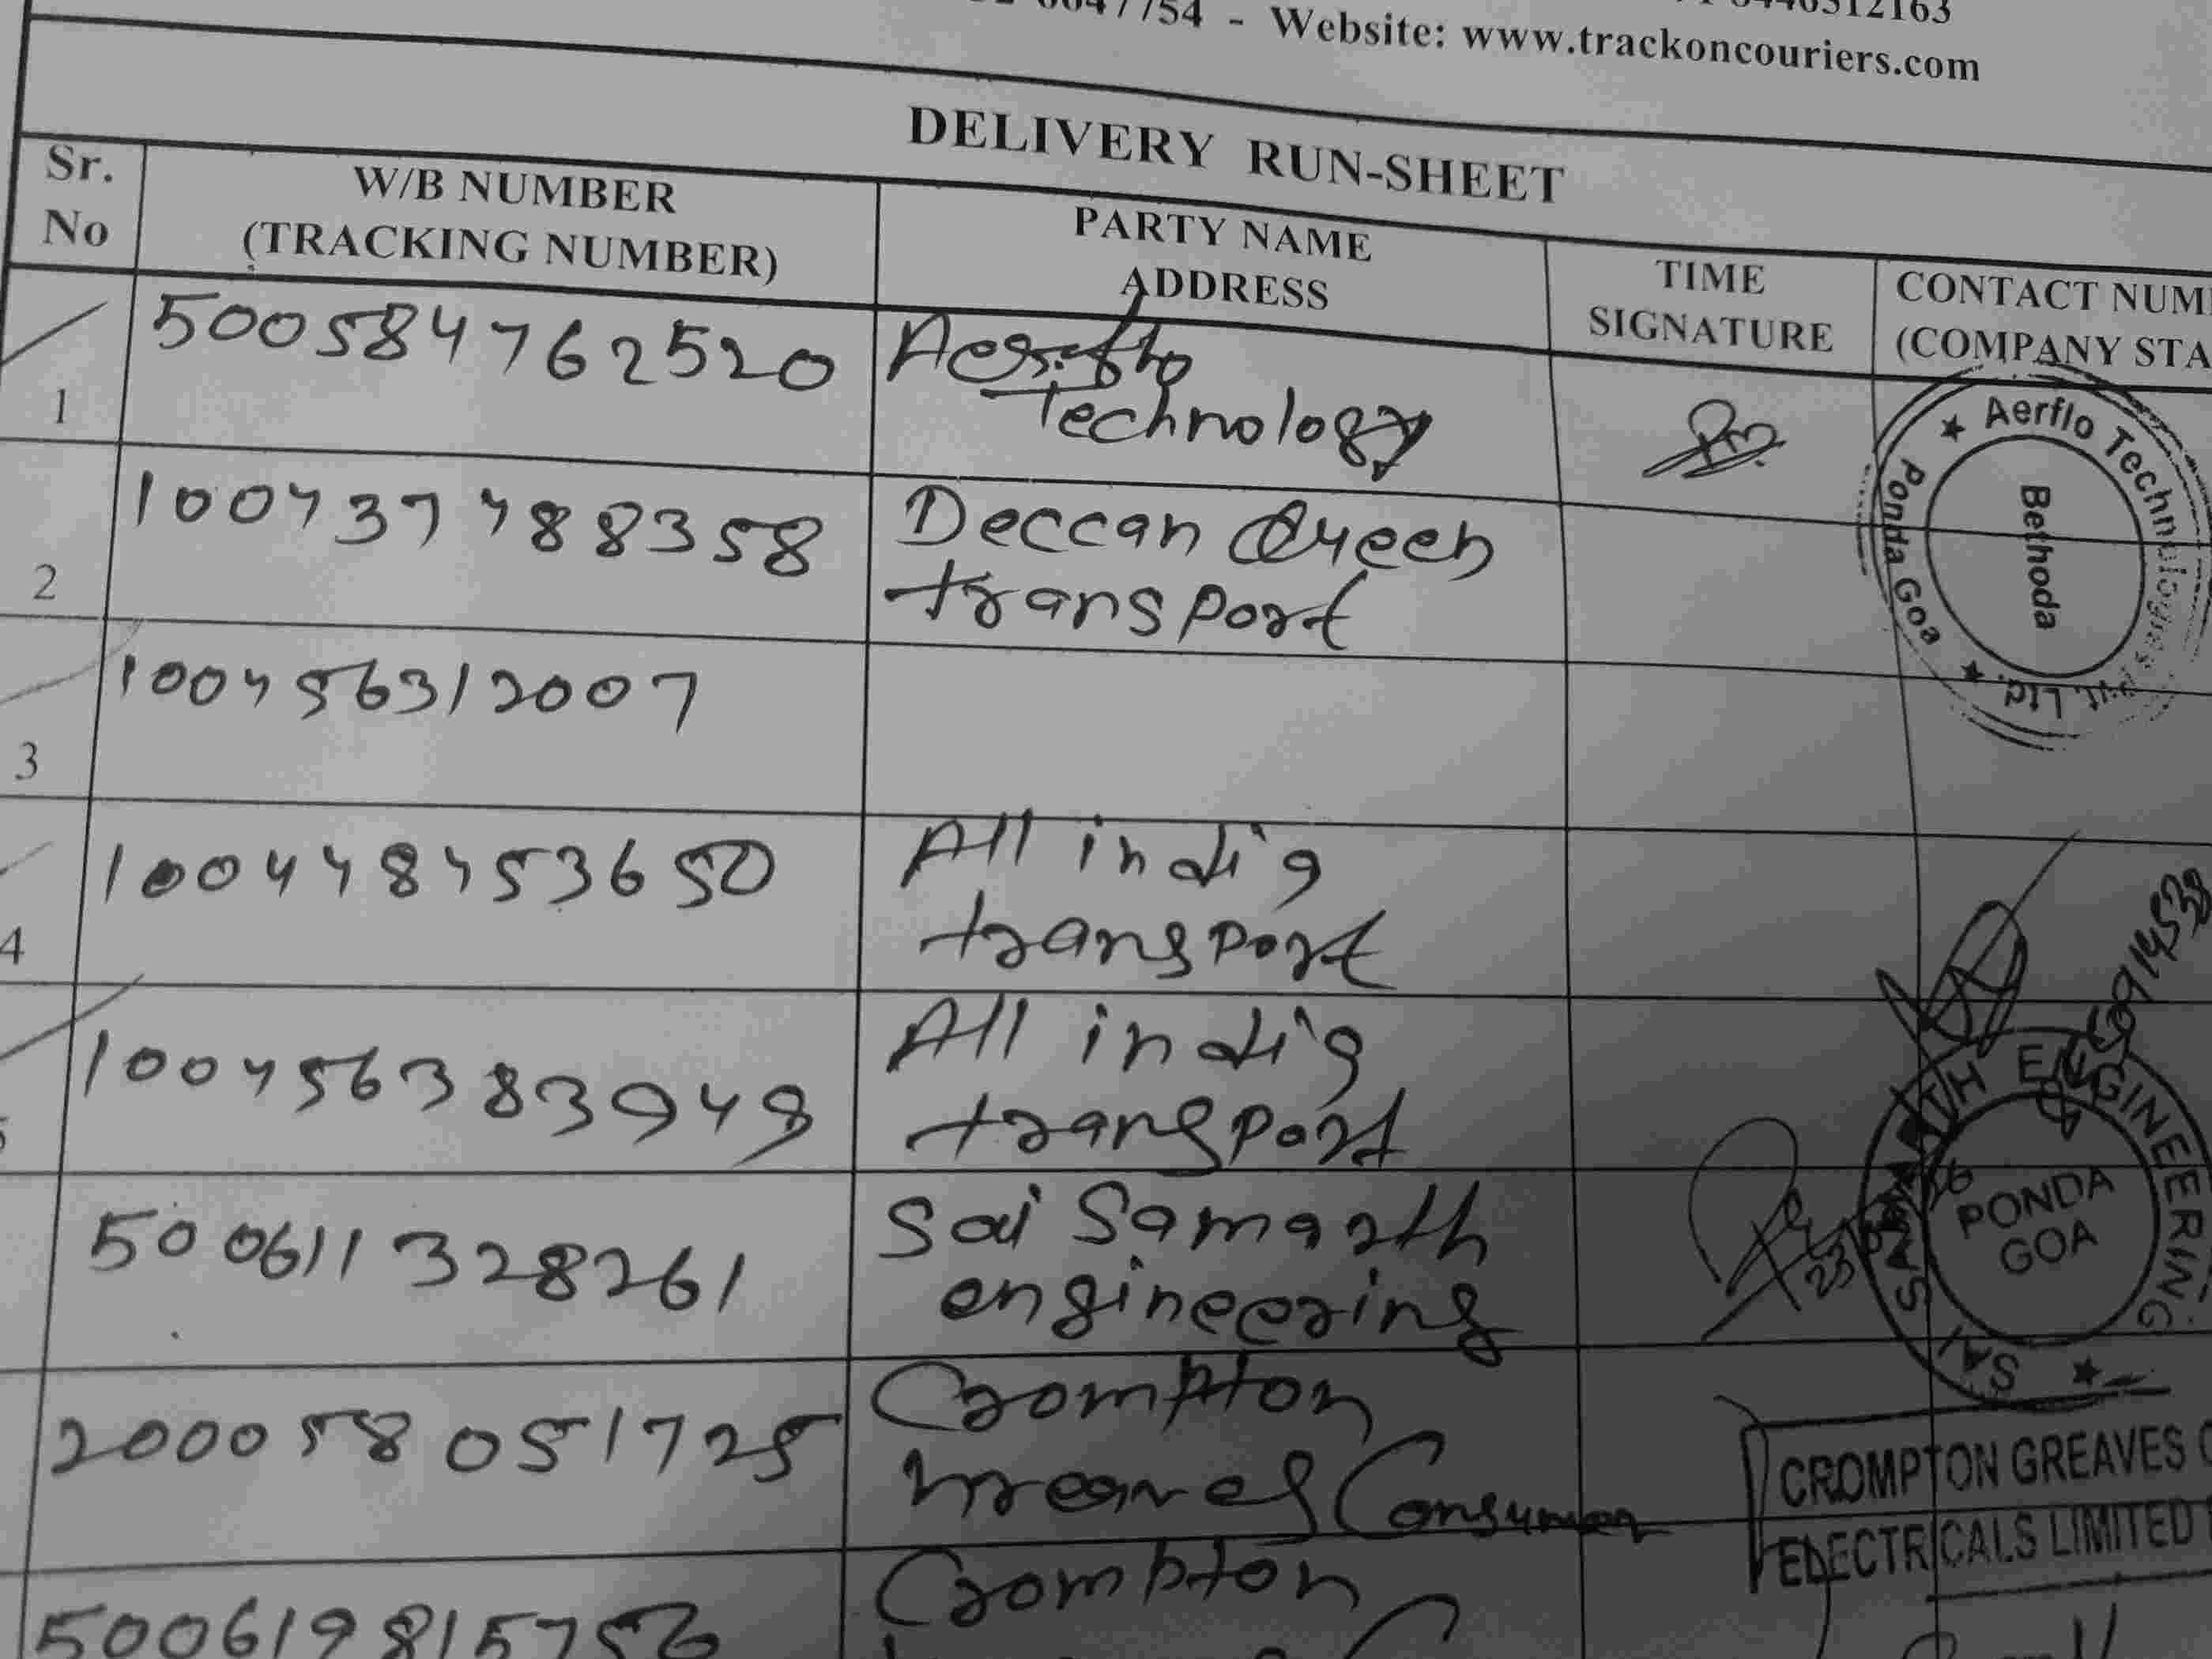 7754 - Website: www.trackoncouriers.com
DELIVERY RUN-SHEET
Sr. No
W/B NUMBER
(TRACKING NUMBER)
PARTY NAME
ADDRESS
TIME
SIGNATURE
CONTACT NUM
(COMPANY STA
1
500584762520
Technology
Aerflo Technologies Pvt. Ltd.
Bethoda
Ponda Goa
2
100437488358
Deccan Queen
transport
3
100456312007
4
100448453650
All india
transport
100456383949
All india
transport
500611328261
Sai Samarth
engineering
SAI SAMARTH ENGINEERING
PONDA
GOA
200058051725
Crompton
Greaves Consumer
CROMPTON GREAVES
ELECTRICALS LIMITED
500619815756
Crompton